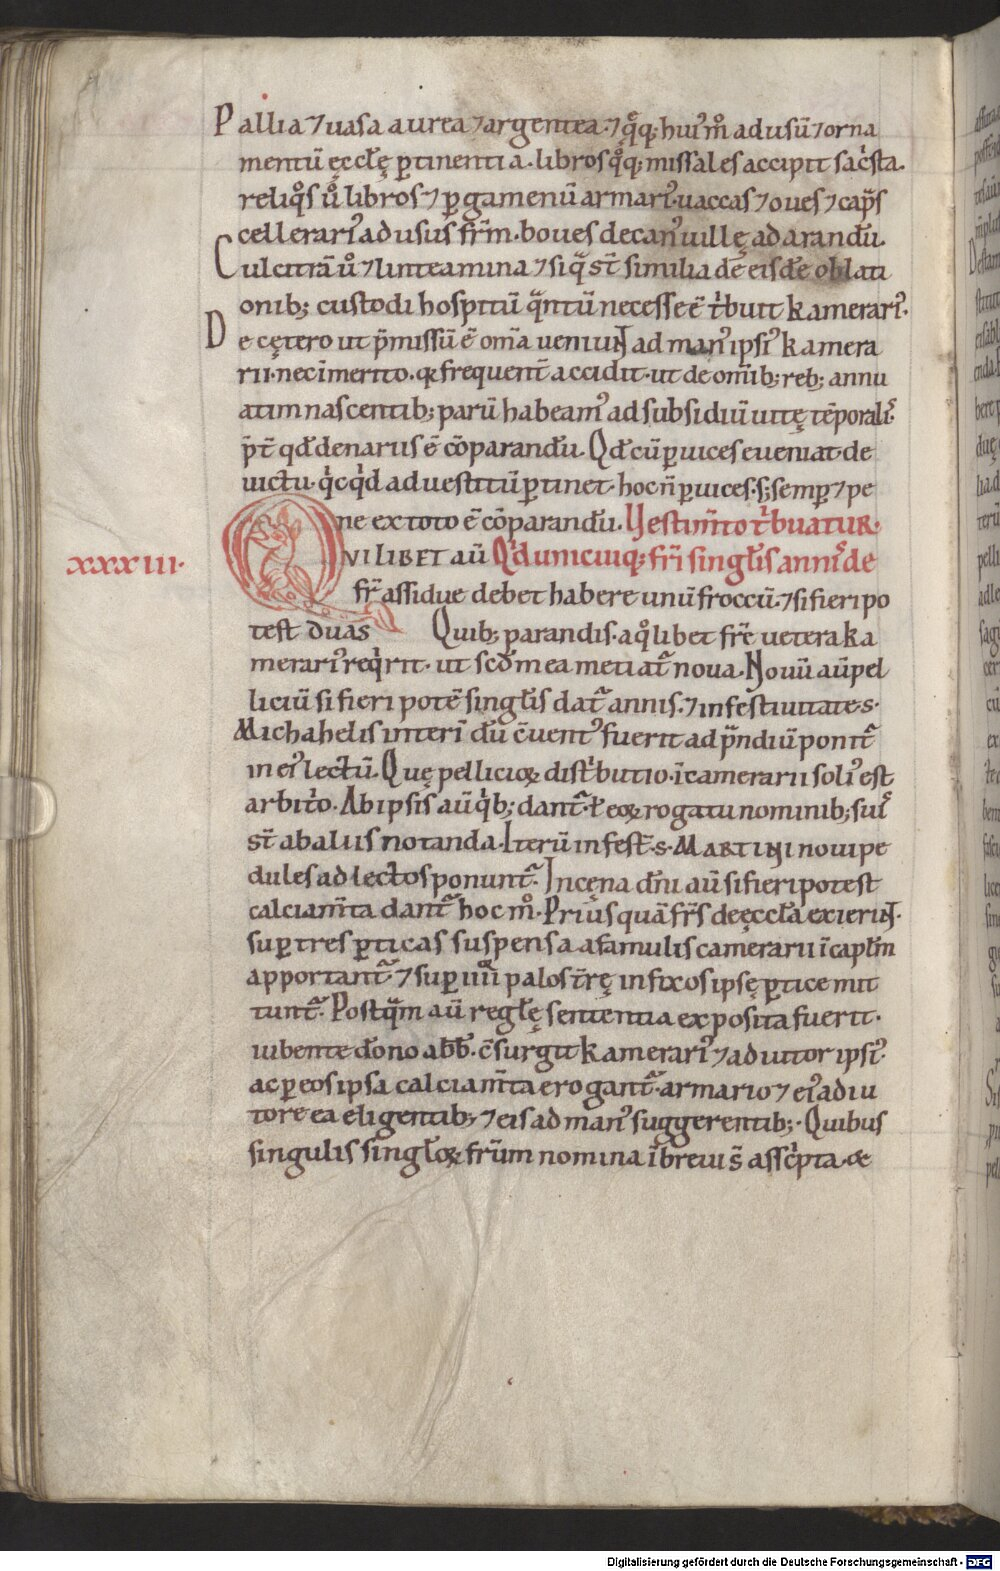 Pallia ⁊ uasa aurea ⁊ argentea ⁊ q̊q; hui᷒m̊ ad usū ⁊ orna
mentū ęccłę ꝑtinentia. libros q̊q; missales accipit sac̓sta.
reliq̊s ů libros ⁊ ꝑgamenū armari᷒. uaccas ⁊ oues ⁊ cap̃s
cellerari᷒ ad usus fr̄m. boues decan᷒ uillę ad arandū.
Culcitrā ů ⁊ linteamina ⁊ siq̃ st̄ similia dē eisdē oblati
onib; custodi hospitū q̃ntū necesse ē t̓buit kamerari᷒.
De cętero ut p̄missū ē om̄a ueniunt ad man᷒ ipsi᷒ kamera
rii. nec imerito. qꝛ frequent̄ accidit. ut de om̄ib; reb; annu
atim nascentib; parū habeam᷒ ad subsidiū uitę tēporalis.
p̄t̄ qđ denariis ē cōparandū. Qđ cū ꝑ uices eueniat de
uictu. q̓cq̓d ad uestitū ꝑtinet. hoc n̄ ꝑ uices. s; semꝑ ⁊ pe
ne ex toto ē cōparandū. Uestim̄to t̓buatur.
xxxiii.
QVILIBET aū Q̓d unicuiq; fr̄i singłis annis de
fr̄ assidue debet habere unū froccū. ⁊ si fieri po
test duas Quib; parandis. a q̊libet fr̄e uetera ka
merari᷒ req̓rit. ut scđm ea metiat᷑ noua. Nouū aū pel
liciū si fieri potē singłis dat᷑ annis. ⁊ in festiuitate s.
Michahelis interī dū c̄uent᷒ fuerit ad p̄ndiū ponit᷑
in ei᷒ lectū. Quę pellicioꝝ dist̓butio. ī camerarii soli᷒ est
arbit̓o. Ab ipsis aū q̓b; dant᷑. t̄ eoꝝ rogatu nominib; suis
st̄ ab aliis notanda. Iterū in fest̄. s. MARTINI noui pe
dules ad lectos ponunt᷑. In cęna dn̄i aū si fieri potest
calciam̄ta dant᷑ hoc m̊. Prius quā fr̄s de ęccła exierint.
suꝑ tres ꝑticas suspensa a famulis camerarii ī capłm
apportant᷑ ⁊ suꝑ iiii᷒ palos t̄rę infixos ipsę ꝑtice mit
tunt᷑. Postq̃m aū regłę sententia exposita fuerit.
iubente dōno abƀ. c̄surgit kamerari᷒ ⁊ adiutor ipsi᷒.
ac ꝑ eos ipsa calciam̄ta erogant᷑. armario ⁊ ei᷒ adiu
tore ea eligentib; ⁊ eis ad man᷒ suggerentib;. Quibus
singulis singłoꝝ frūm nomina ī breuis̄ assc̓pta. de
Digitalisierung gefördert durch die Deutsche Forschungsgemeinschaft - DFG